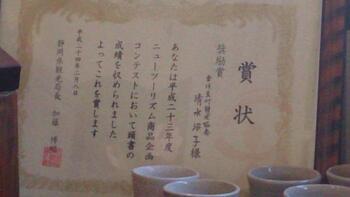 賞状
奨励賞
清水 子様
あなたは平成二十三年度
ニューツーリズム商品企画
コンテストにおいて頭書の
成績を収められました
よってこれを賞します
平成二十四年二月八日
静岡県観光局長 加藤 博